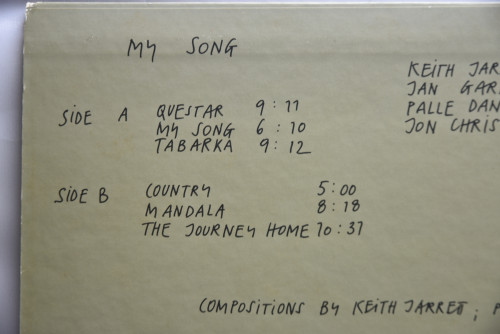 MY SONG
KEITH JAR
JAN GAR
PALLE DAN
JON CHRIS
SIDE A QUESTAR 9:11
MY SONG 6:10
TABARKA 9:12
SIDE B COUNTRY 5:00
MANDALA 8:18
THE JOURNEY HOME 10:37
COMPOSITIONS BY KEITH JARRETT; P